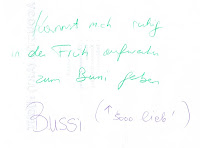 Kannst mich ruhig
in der Früh aufwecken
zum Bussi geben
Bussi (↑ sooo lieb!)